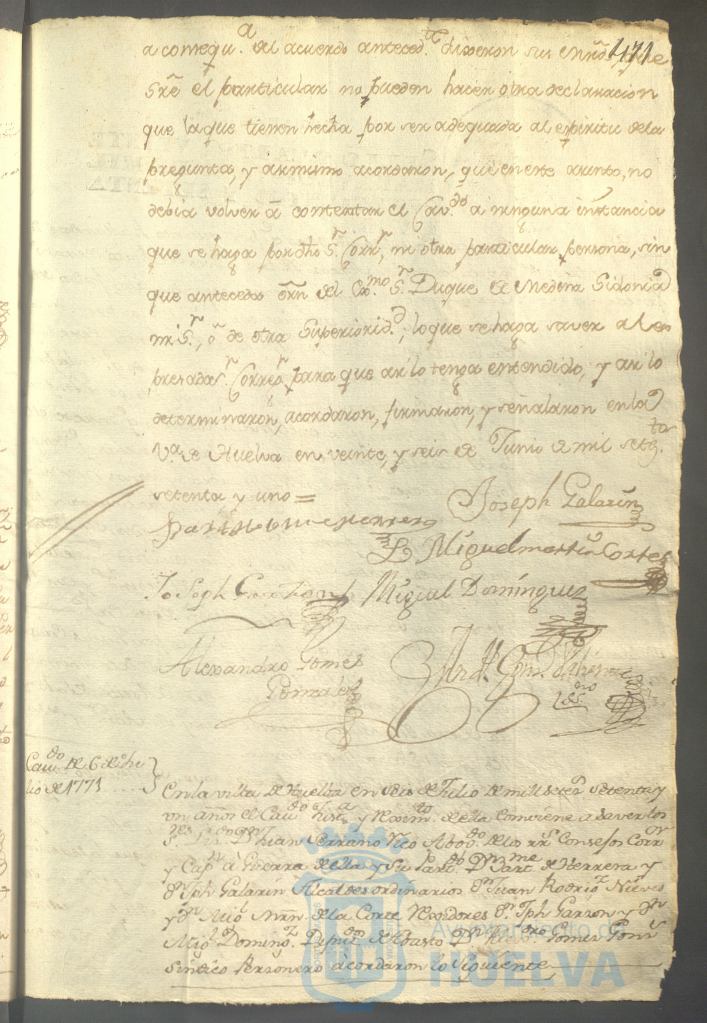 471
a consequ.ª del acuerdo anteced.te dixeron sus mrds, que
sre el particular no pueden hacer otra declaracion
que la que tienen hecha por ser adequada al espiritu dela
pregunta, y asimismo acordaron, que en este asunto, no
debia volver â contextar el Cav.do a ninguna instancia
que se haga por dho S.r Corr.r, ni otra particular persona, sin
que anteceda orn del Ex.mo S.r Duque de Medina Sidonia
mi S.r, ô de otra Superiorid.d; lo que se haga saver al ex
presado S.r Correg.r para que asi lo tenga entendido, y asi lo
determinaron, acordaron, firmaron, y señalaron en la
V.ª de Huelva en veinte, y seis de Junio de mil setz.tos
setenta y uno =
Bartholome Herrera
Joseph Galarin
Miguel martin Cortes
Joseph Garzon
Miguel Dominguez
Alexandro Gomez
Gonzalez
Cav.do de 6 de Ju
lio de 1771
En la villa de Huelva en seis de Julio de mill setez.s setenta y
un años el Cav.do Just.a y Rexim.to de ella conviene a saver los
S.res D.n Juan Serrano Vico Abog.do de los R.s Consejos Corr.or
y Cap.n a Guerra de ella y su part.do D.n Bart.me de Herrera y
D.n Jph Galarin Alcaldes ordinarios D.n Juan Rodrig.z Nieves
y D.n Mig.l Mrn. de la Corte Rexidores D.n Jph Garzon y D.n
Mig.l Doming.z Diput.os del Abasto D.n Alex.dro Gomez Gonz.z
sindico Personero acordaron lo siguiente
Ayuntamiento de
HUELVA